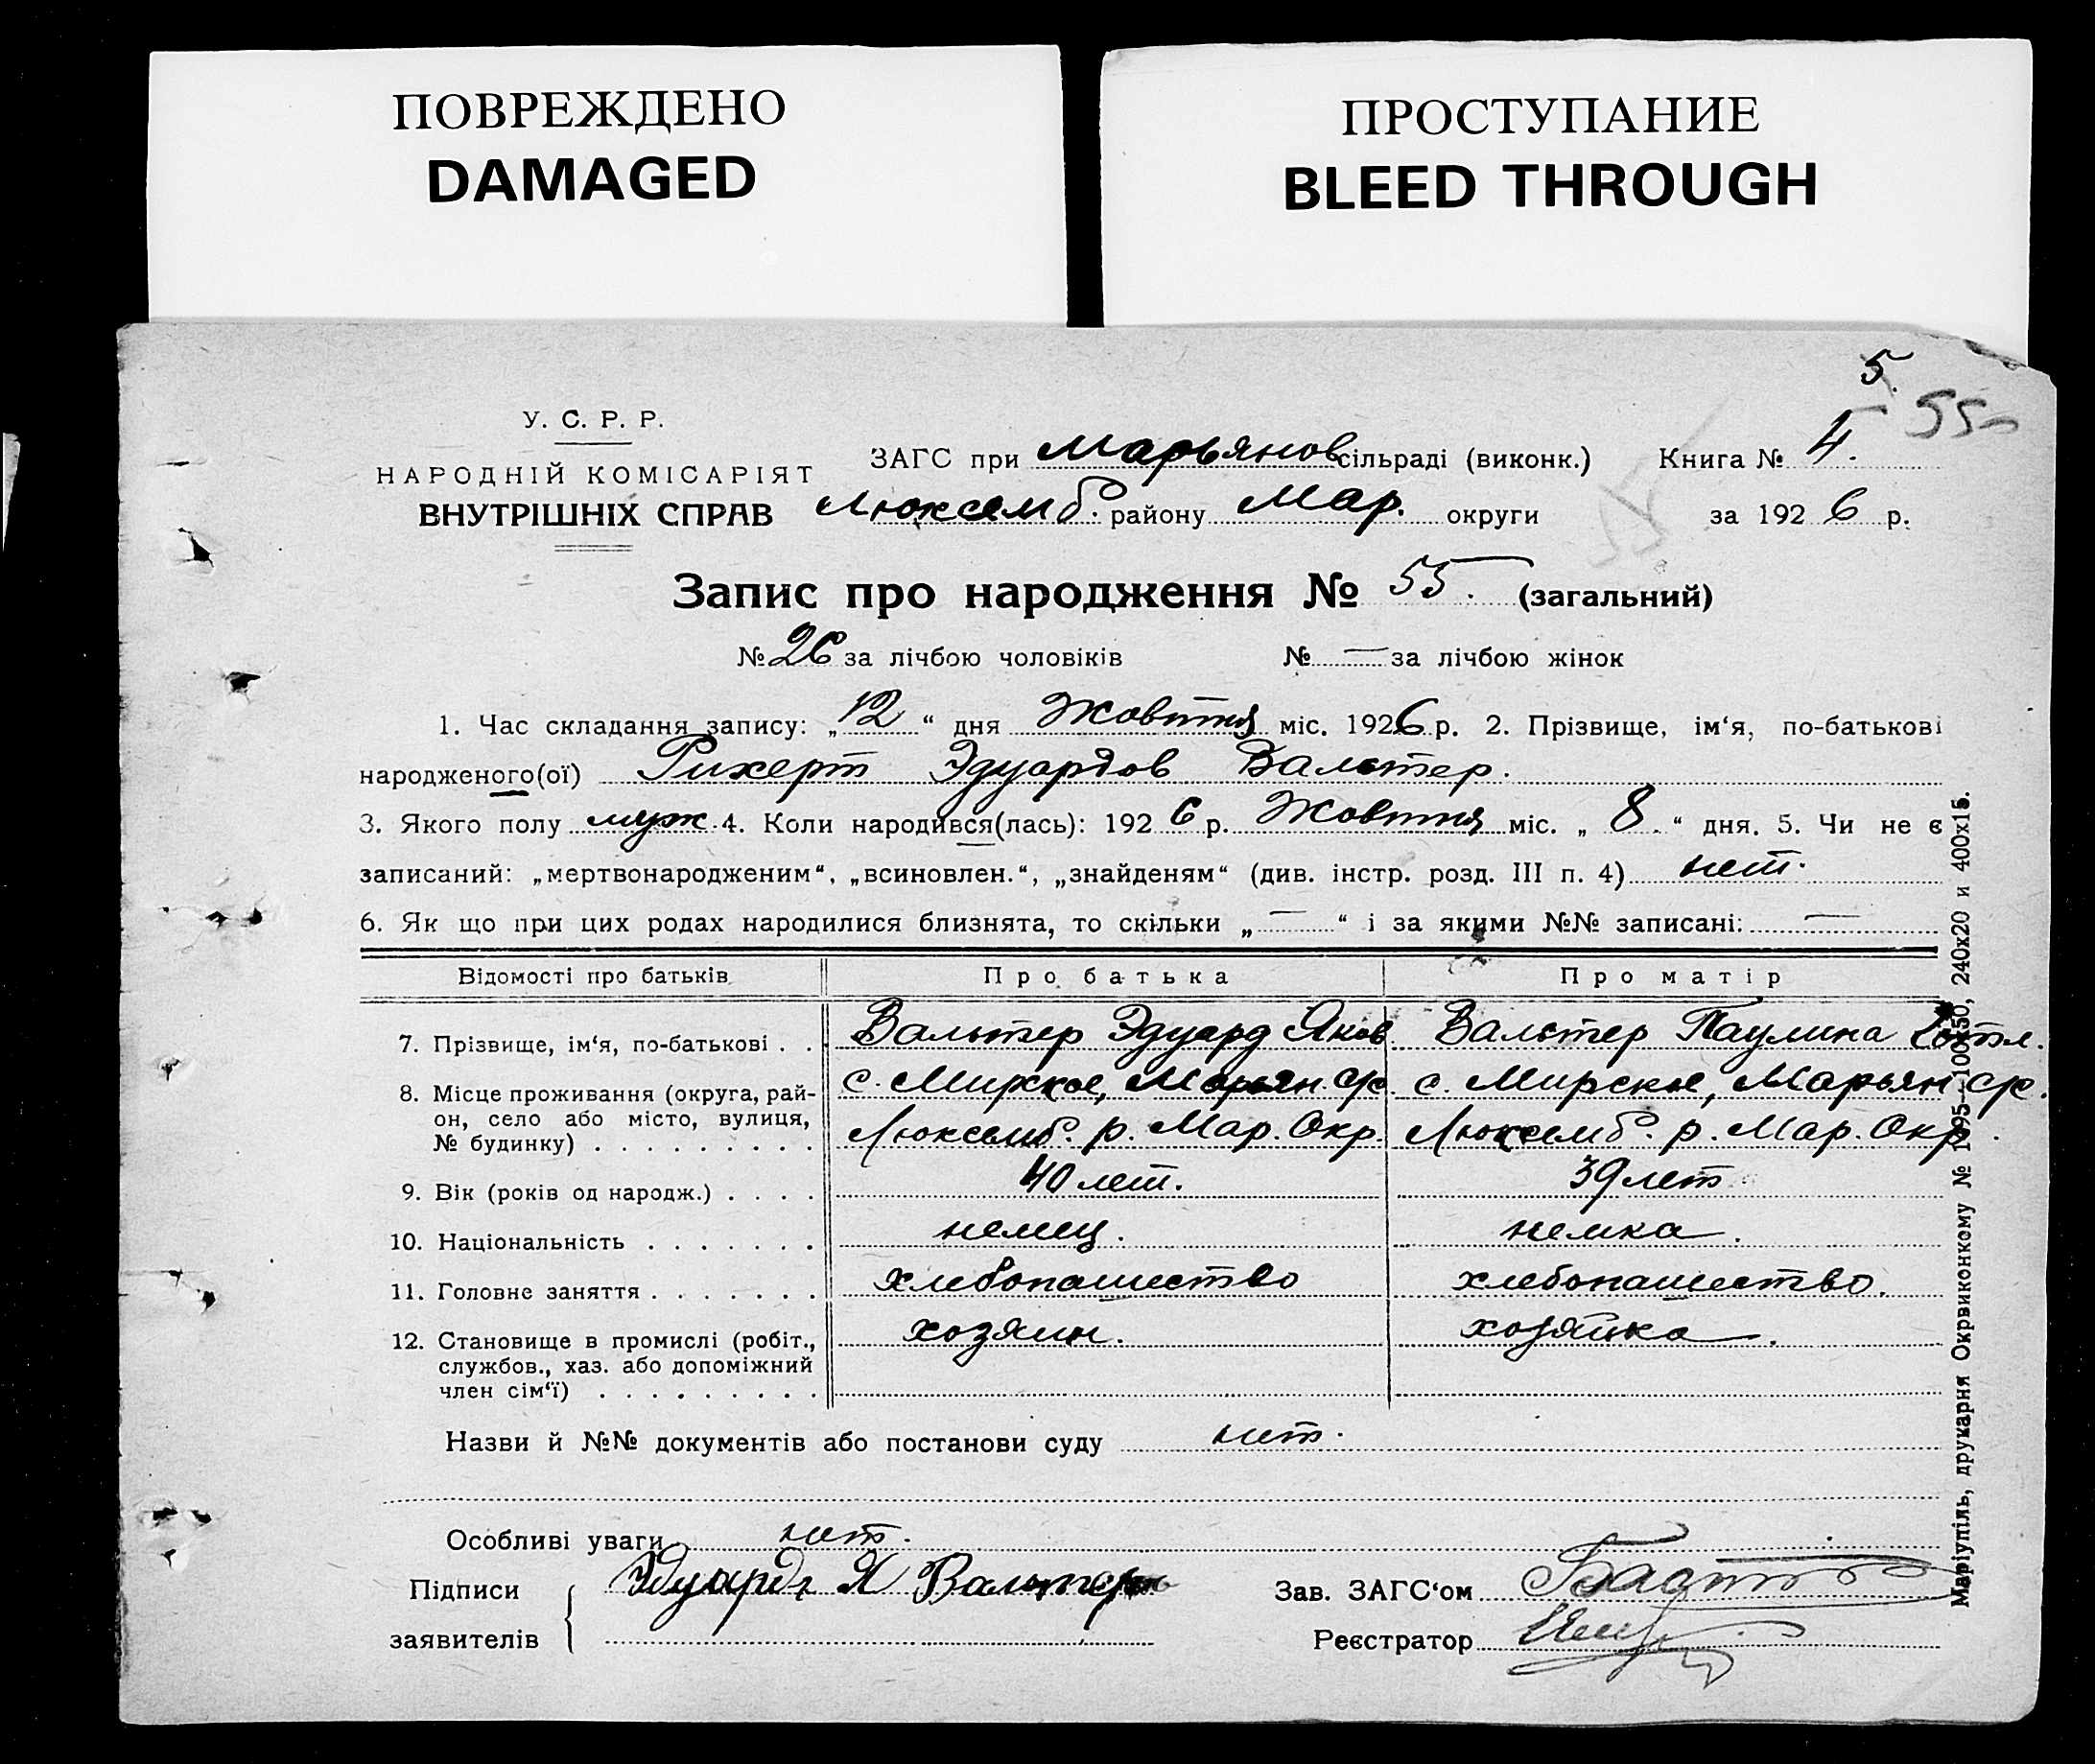 ПОВРЕЖДЕНО
DAMAGED
ПРОСТУПАНИЕ
BLEED THROUGH
5.
55
У. С. Р. Р.
НАРОДНІЙ КОМІСАРІЯТ
ВНУТРІШНІХ СПРАВ
ЗАГС при Марьянов сільраді (виконк.) Книга № 4.
Люксемб. району Мар. округи за 1926 р.
Запис про народження № 55. (загальний)
№ 26 за лічбою чоловіків № — за лічбою жінок
1. Час складання запису: „12“ дня Жовтня міс. 1926 р. 2. Прізвище, ім‘я, по-батькові
народженого(ої) Рихерт Эдуардов Вальтер.
3. Якого полу муж. 4. Коли народився(лась): 1926 р. Жовтня міс. „8.“ дня. 5. Чи не є
записаний: „мертвонародженим“, „всиновлен.“, „знайденям“ (див. інстр. розд. III п. 4) нет.
6. Як що при цих родах народилися близнята, то скільки „—“ і за якими №№ записані: —
Відомості про батьків Про батька Про матір
7. Прізвище, ім‘я, по-батькові . . Вальтер Эдуард Яков Вальтер Паулина Готл.
8. Місце проживання (округа, рай-
он, село або місто, вулиця,
№ будинку) . . . . . . . . .
с. Мирское, Марьян. с/с с. Мирское, Марьян с/с.
Люксемб. р. Мар. Окр. Люксемб. р. Мар. Окр.
9. Вік (років од народж.) . . . . 40 лет. 39 лет
10. Національність . . . . . . . немец. немка.
11. Головне заняття . . . . . . . хлебопашество хлебопашество.
12. Становище в промислі (робіт., хозяин. хозяйка.
службов., хаз. або допоміжний
член сім‘ї) . . . . . . . . .
Назви й №№ документів або постанови суду нет.
Особливі уваги нет.
Підписи Эдуард Я Вальтер Зав. ЗАГС‘ом
заявителів Реєстратор
Маріупіль, друкарня Окрвиконкому № 1095—100х50, 240х20 и 400х15.